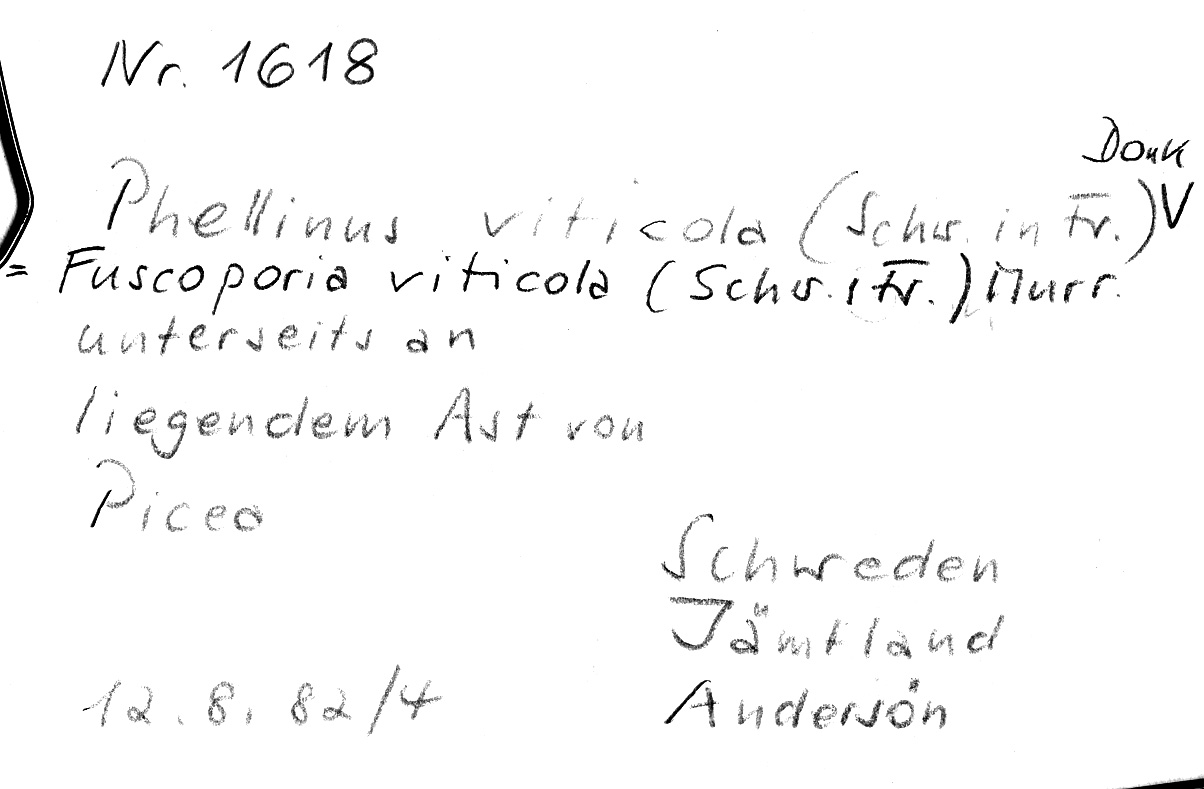 Nr. 1618
Donk
Phellinus viticola (Schw. in Fr.) V
= Fuscoporia viticola (Schw. i Fr.) Murr.
unterseits an
liegendem Ast von
Picea
Schweden
Jämtland
12.8.82/4 Andersön